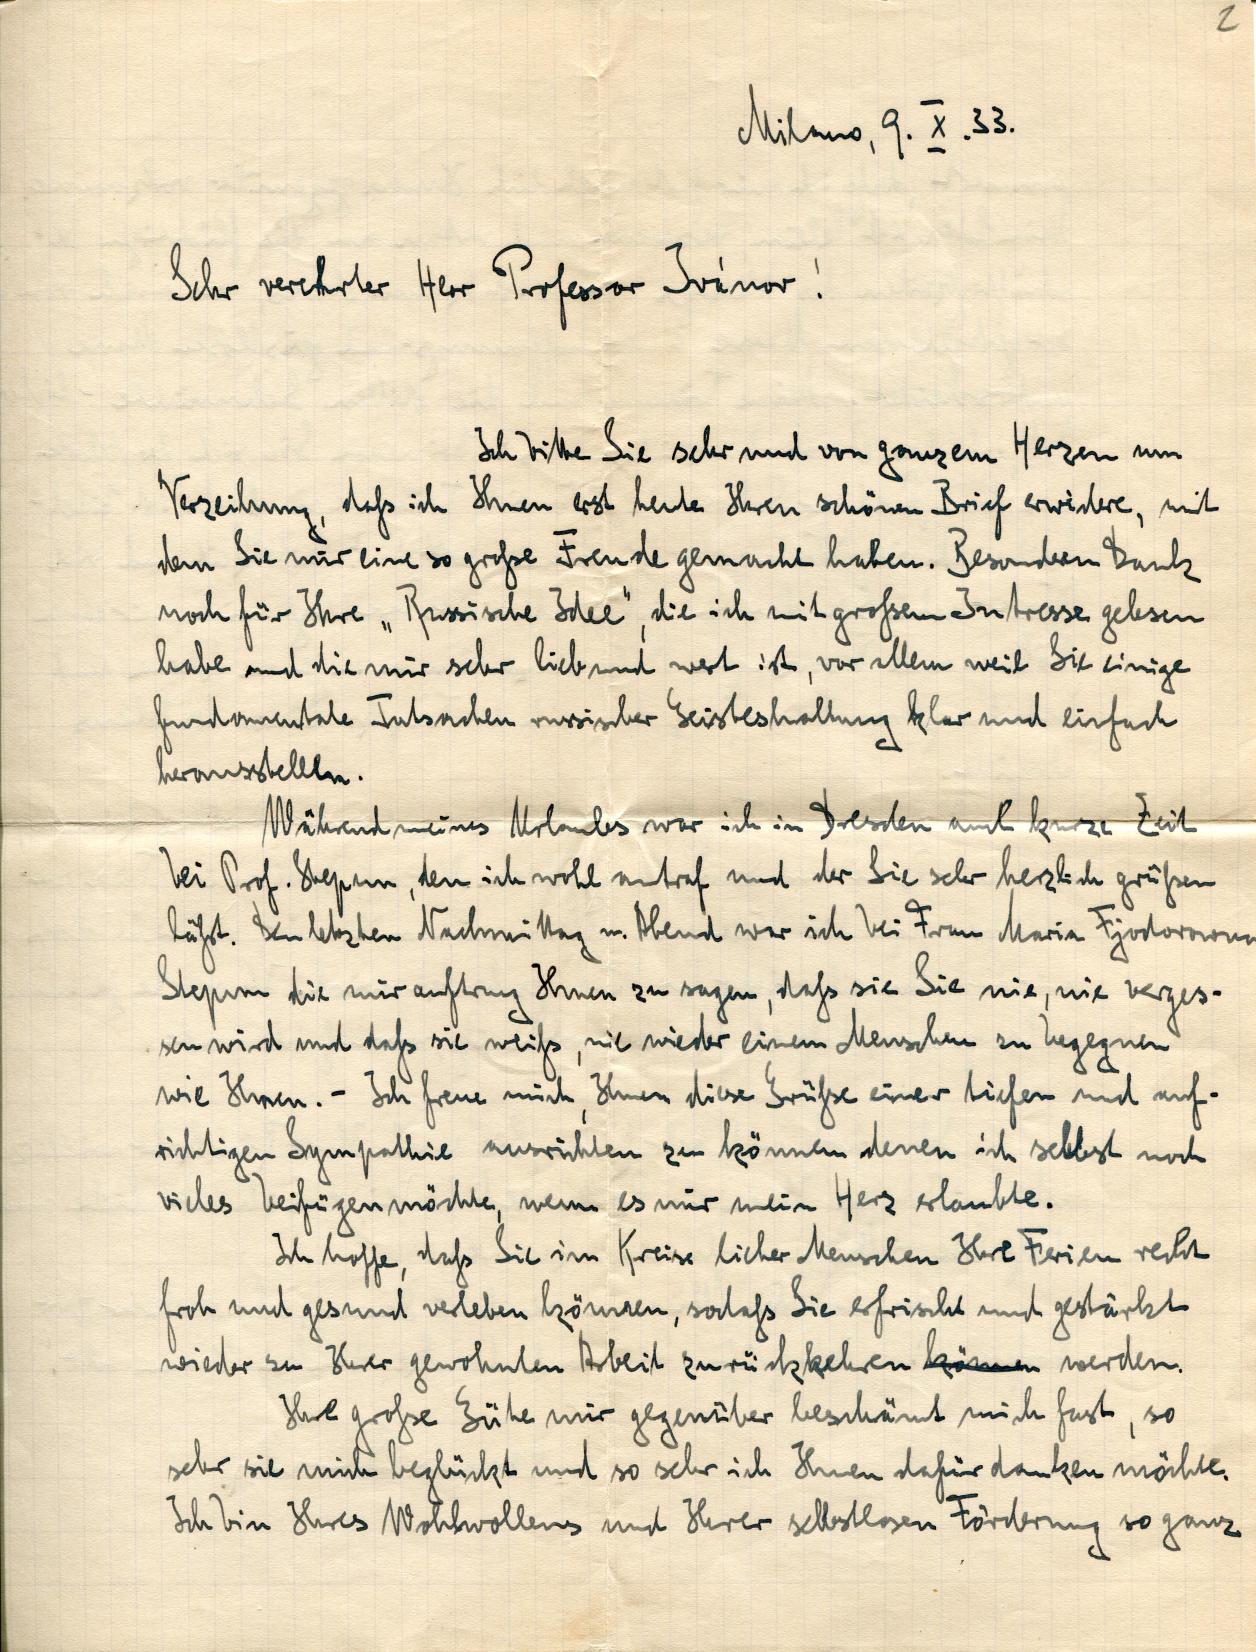 2
Milano, 9. X. 33.
Sehr verehrter Herr Professor Ivánov!
Ich bitte Sie sehr und von ganzem Herzen um
Verzeihung, daß ich Ihnen erst heute Ihren schönen Brief erwidere, mit
dem Sie mir eine so große Freude gemacht haben. Besonderen Dank
noch für Ihre „Russische Idee", die ich mit großem Intresse gelesen
habe und die mir sehr lieb und wert ist, vor allem weil Sie einige
fundamentale Tatsachen russischer Geisteshaltung klar und einfach
herausstellen.
Während meines Urlaubes war ich in Dresden auch kurze Zeit
bei Prof. Stepun, den ich wohl antraf und der Sie sehr herzlich grüßen
läßt. Den letzten Nachmittag u. Abend war ich bei Frau Maria Fjodorowna
Stepun die mir auftrug Ihnen zu sagen, daß sie Sie nie, nie verges-
sen wird und daß sie weiß, nie wieder einem Menschen zu begegnen
wie Ihnen. - Ich freue mich, Ihnen diese Grüße einer tiefen und auf-
richtigen Sympathie ausrichten zu können denen ich selbst noch
vieles beifügen möchte, wenn es mir mein Herz erlaubte.
Ich hoffe, daß Sie im Kreise lieber Menschen Ihre Ferien recht
froh und gesund verleben können, sodaß Sie erfrischt und gestärkt
wieder zu Ihrer gewohnten Arbeit zurückkehren können werden.
Ihre große Güte mir gegenüber beschämt mich fast, so
sehr sie mich beglückt und so sehr ich Ihnen dafür danken möchte.
Ich bin Ihres Wohlwollens und Ihrer selbstlosen Förderung so ganz